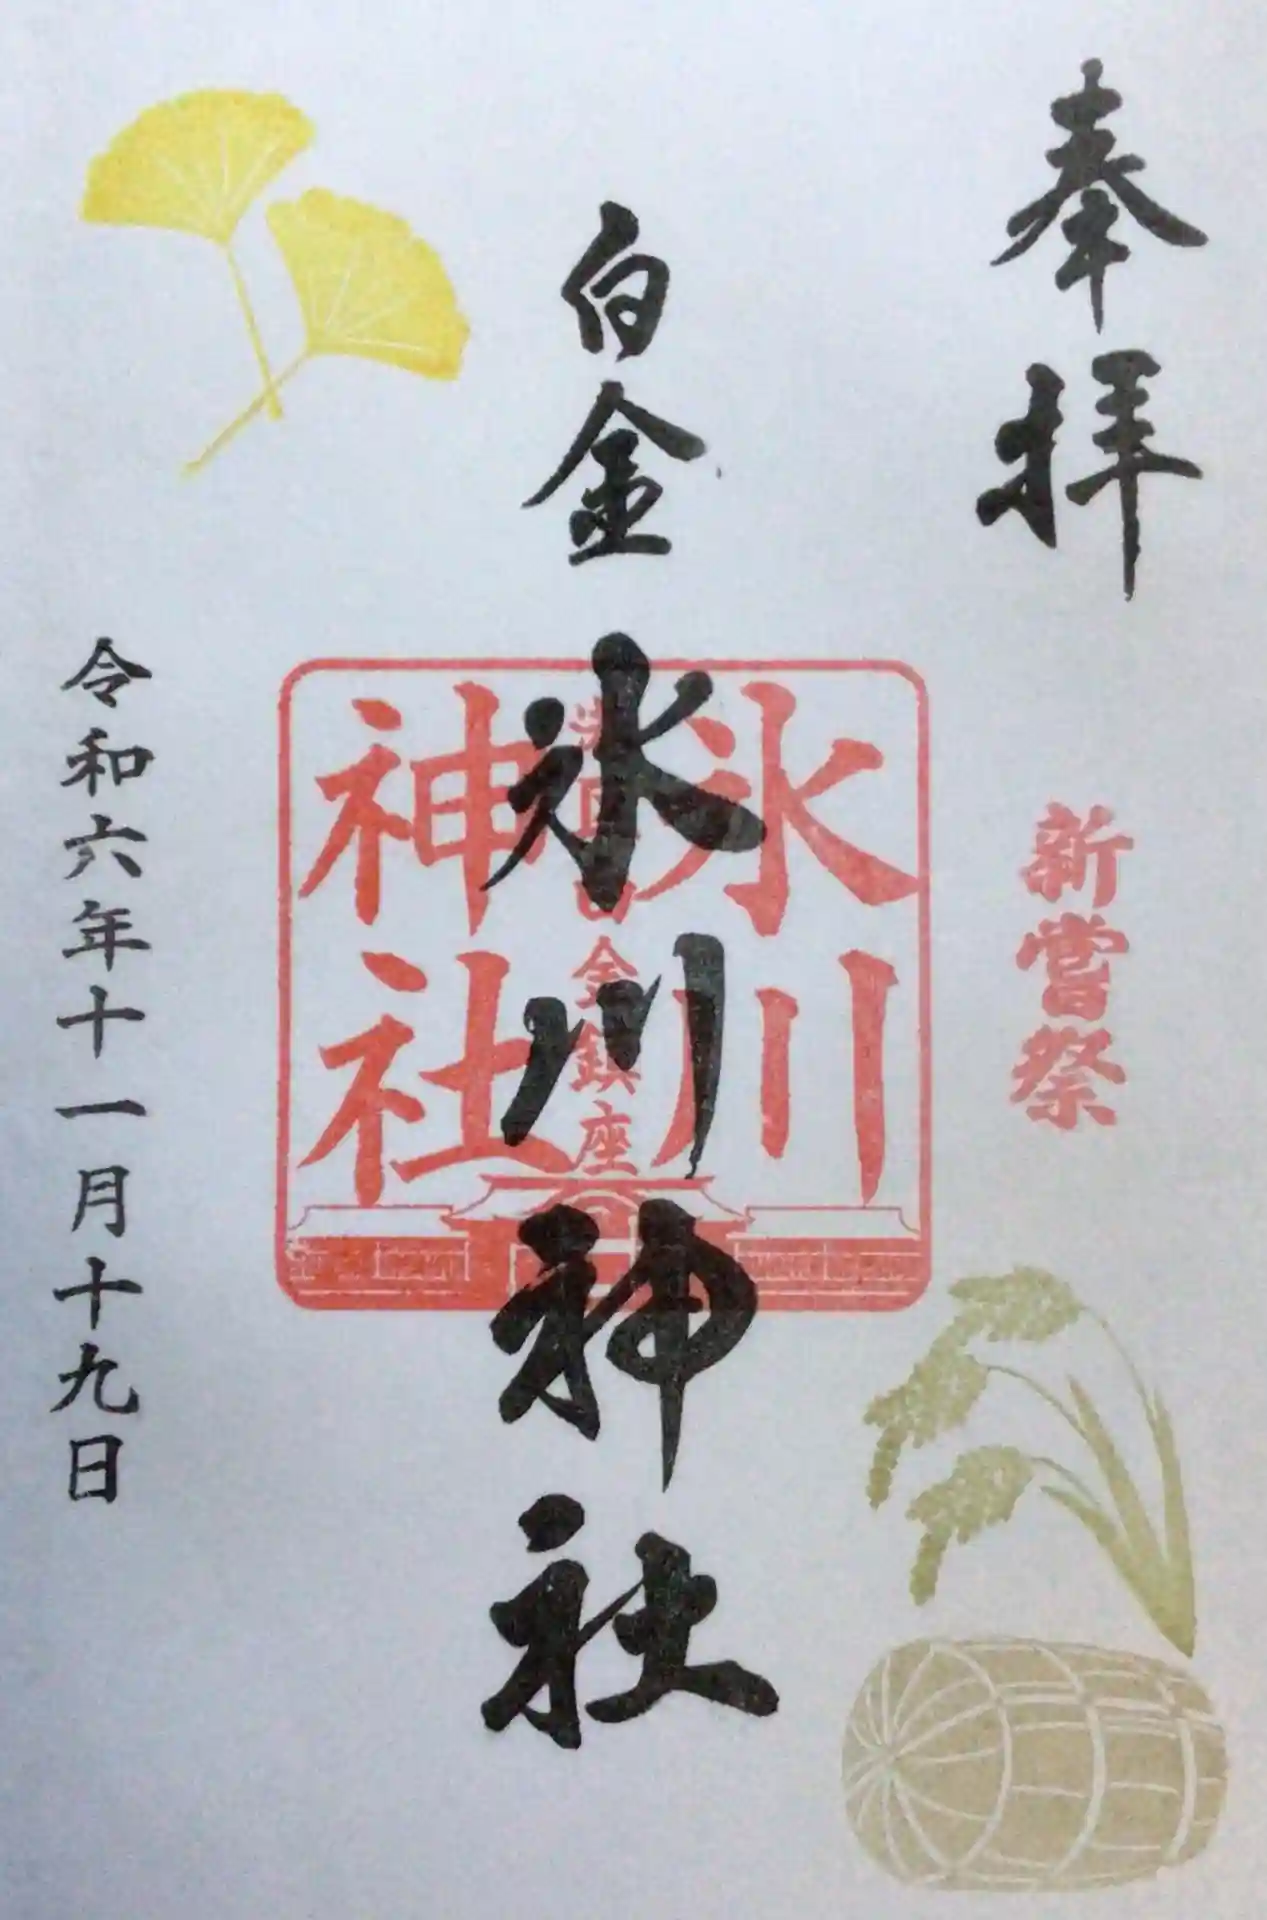 奉拝
新嘗祭
白金
氷川神社
氷川
神社
金鎮座
令和六年十一月十九日